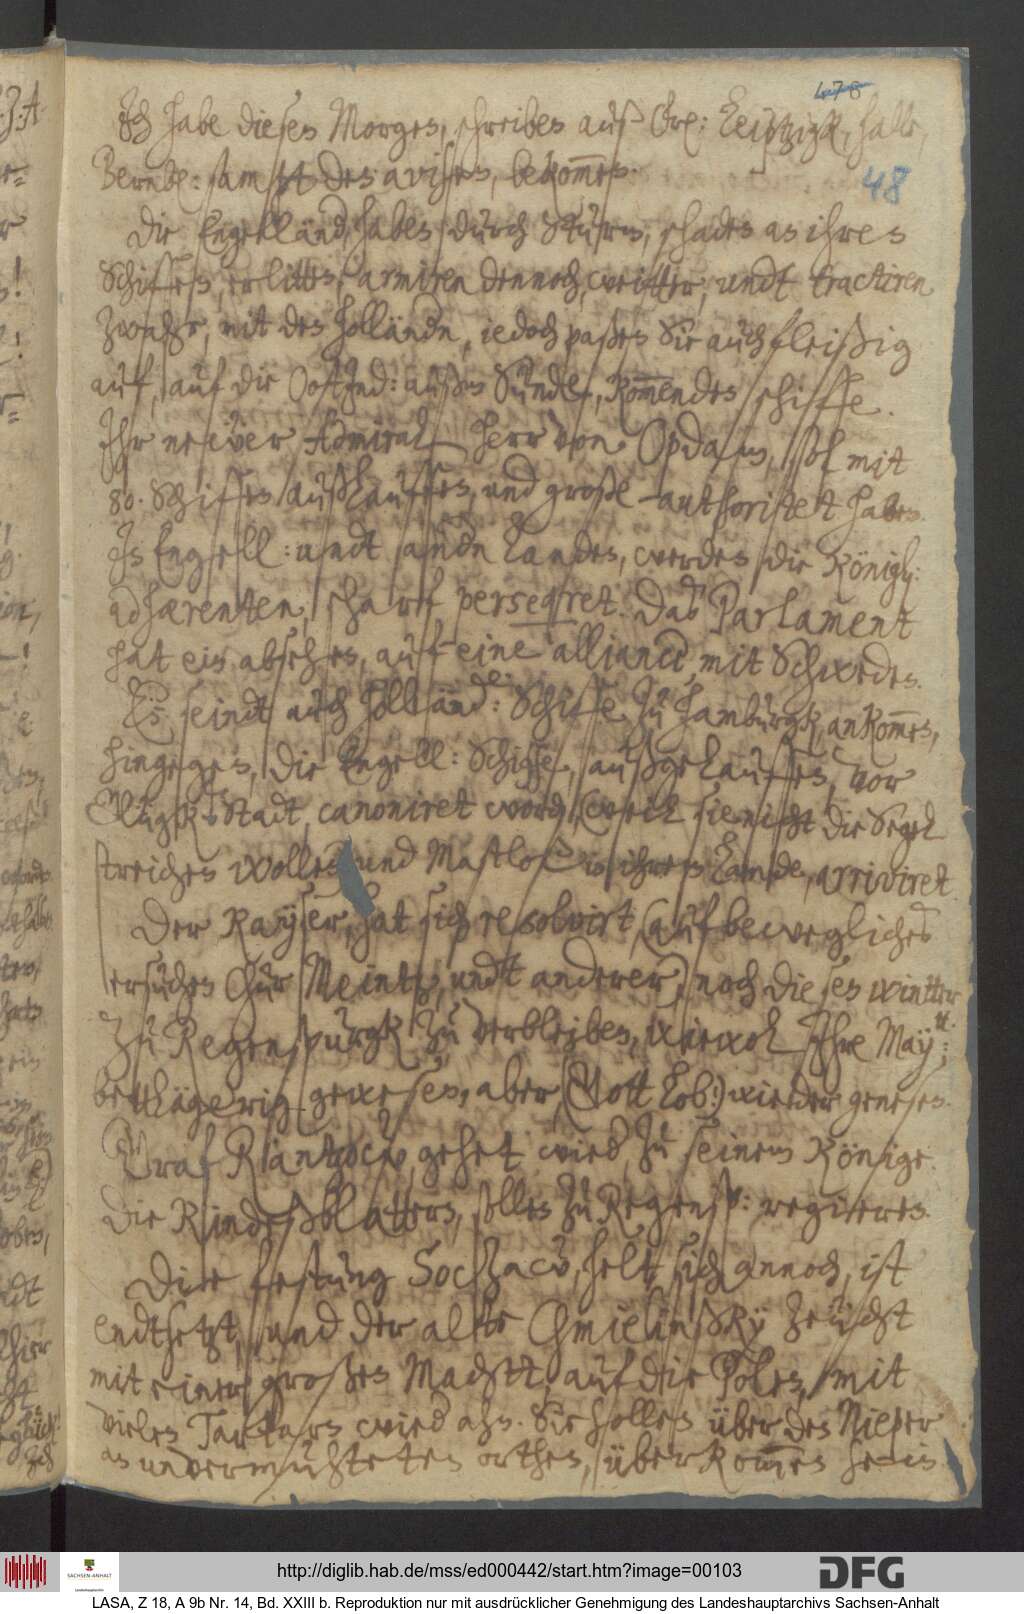 478
48
Ich habe dieses Morgens, schreiben auß Leiptzigk, Halle,
Bernb: sambt den avisen, bekommen.
Die Engelländ: haben durch Sturm, schaden an ihren
Schiffen, erlitten, armiren dennoch, weitter, undt tractiren
zwahr, mit den Holländn, iedoch paßen Sie auch fleißig
auf, auf die OostInd: außm Sunde, kommenden schiffe.
Ihr neüer Admiral Herr von Opdam, soll mit
80. Schiffen außlauffen, und große authoritet haben.
In Engell: undt andn Landen, werden die Königl:
adhærenten, scharf perseq̃ret. Das Parlament
hat ein absehen, auf eine alliance, mit Schweden.
Es seindt auch Holländ: Schiffe zu Hamburgk ankommen,
hingegen, die Engell: Schiffe, außgelauffen, vor
Glügkstadt, canoniret word, (weil sie nicht die Segel
streichen wollen) und Mastloß in ihren Lande, arriviret.
Der Kayser, hat sich resolvirt, (auf bewegliches
ersuchen Chur Meintz, undt anderer) noch diesen wintter
zu Regenspurgk zu verbleiben, wiewol Ihre May:tt
bettlägerig gewesen, aber (Gott Lob:) wieder genesen.
Graf Rantzow, gehet wied zu seinem Könige.
Die Kindeßblattern, sollen zu Regensp: regieren.
Die festung Soczaw, helt sich annoch, ist
endtsetzt, und der alte Chmielinßky zeücht
mit einer großen Machtt, auf die Polen, mit
vielen Tartarn wied ahn. Sie sollen über den Nieper
an unvermuhteten orthen, überkommen sein
http://diglib.hab.de/mss/ed000442/start.htm?image=00103
SACHSEN-ANHALT
DFG
LASA, Z 18, A 9b Nr. 14, Bd. XXIII b. Reproduktion nur mit ausdrücklicher Genehmigung des Landeshauptarchivs Sachsen-Anhalt